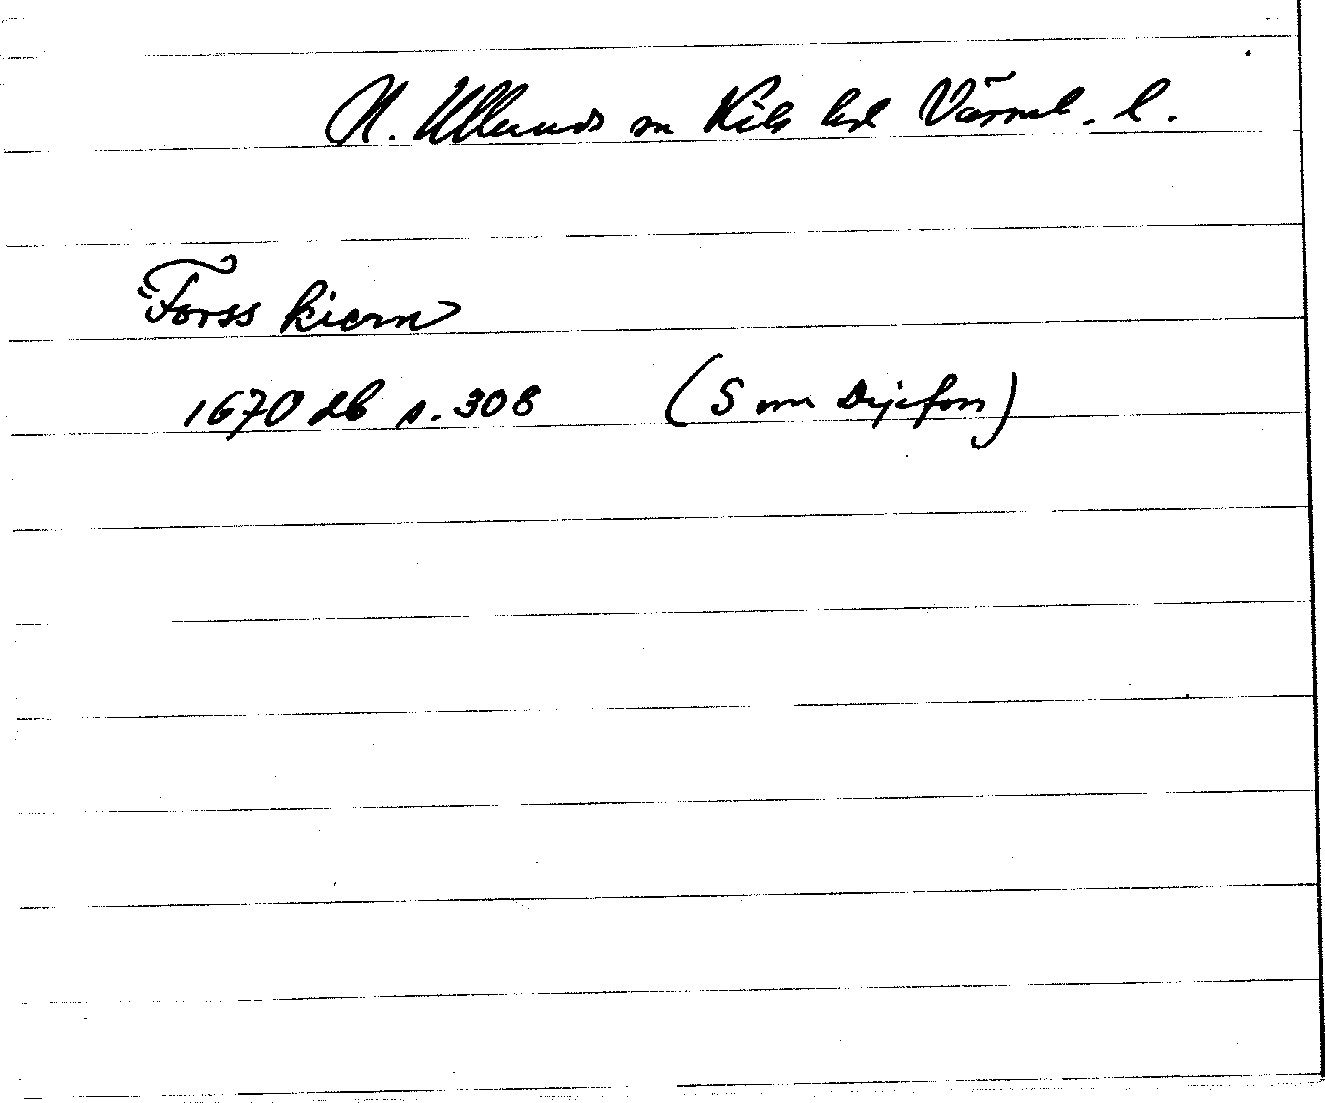 N. Ullerud sn Kils hd Värml. l.
Forss kiern
1670 db s. 308 (S om Dejefors)